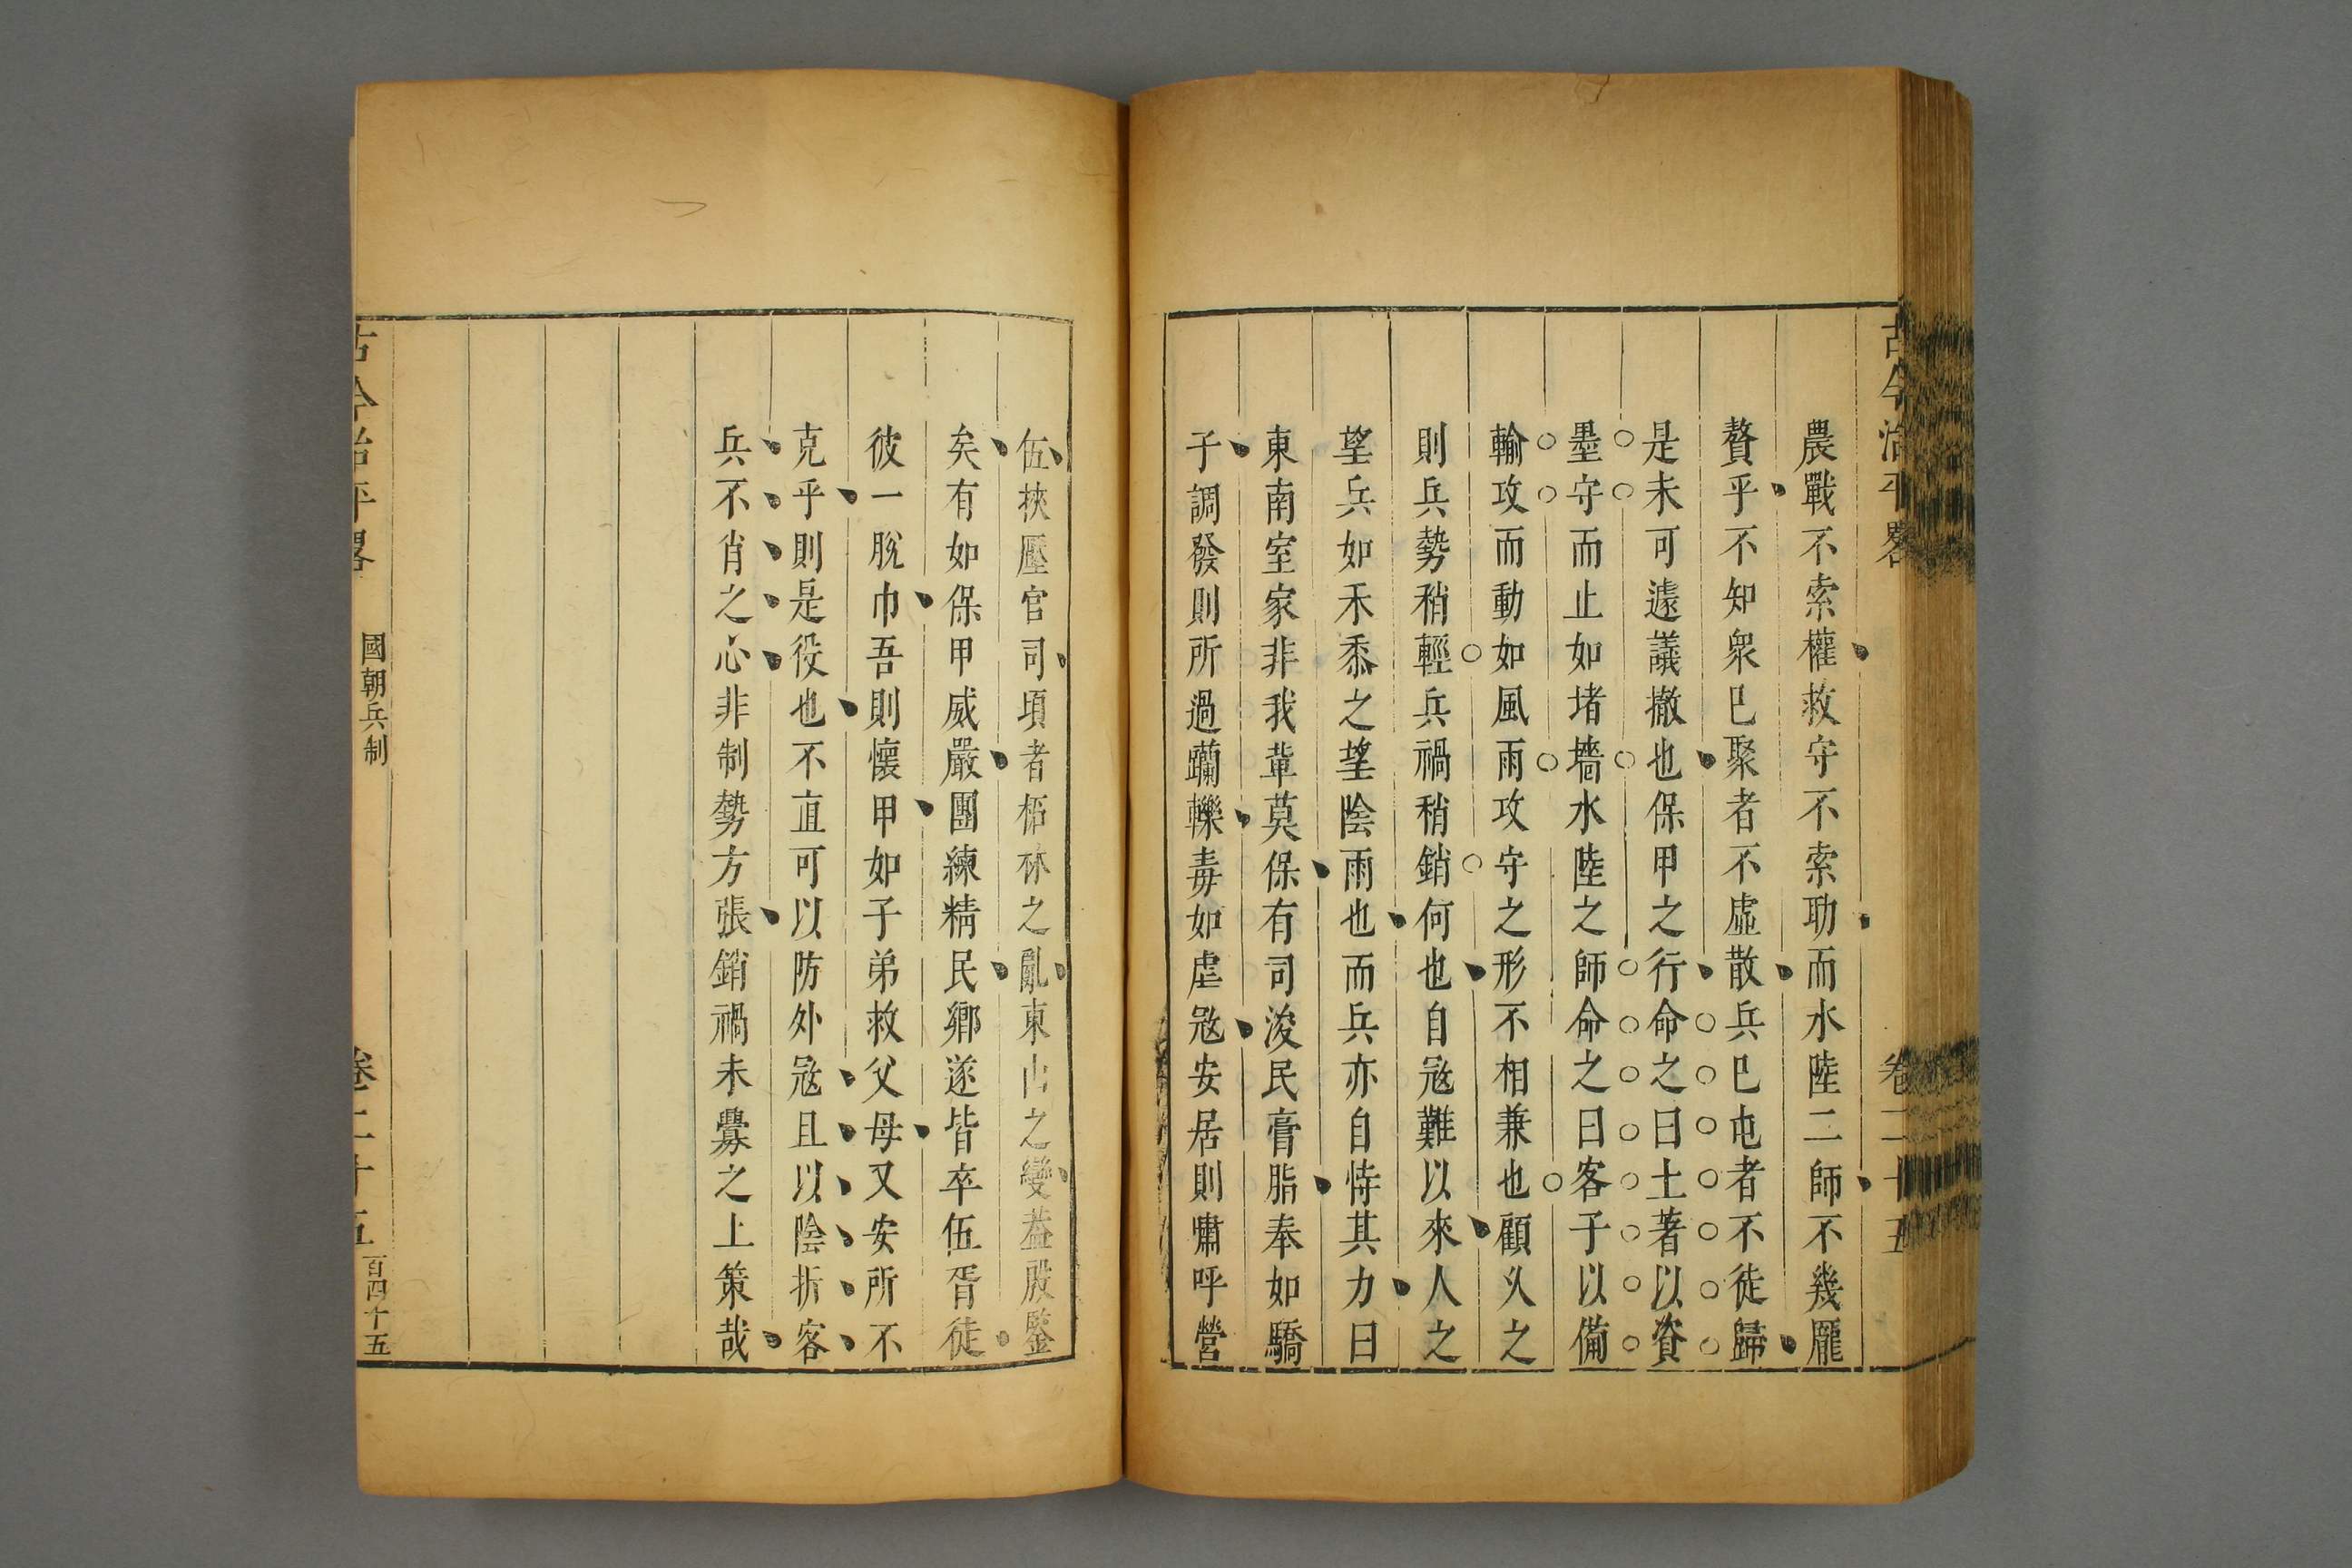 古今治平畧
卷二十五
農戰不索權救守不索功而水陸二師不幾龎
贅乎不知衆已聚者不虛散兵已屯者不徒歸
是未可遽議撤也保甲之行命之曰土著以資
墨守而止如堵墻水陸之師命之曰客子以備
輸攻而動如風雨攻守之形不相兼也顧乆之
則兵勢稍輕兵禍稍銷何也自冦難以來人之
望兵如禾黍之望陰雨也而兵亦自恃其力曰
東南室家非我輩莫保有司浚民膏脂奉如驕
子調發則所過躪轢毒如虐冦安居則嘯呼營
伍挾壓官司頃者柘林之亂東山之變葢殷鑒
矣有如保甲威嚴團練精民鄉遂皆卒伍胥徒
彼一脫巾吾則懷甲如子弟救父母又安所不
克乎則是役也不直可以防外冦且以陰折客
兵不肖之心非制勢方張銷禍未釁之上策哉
古今治平畧
國朝兵制
卷二十五
百四十五